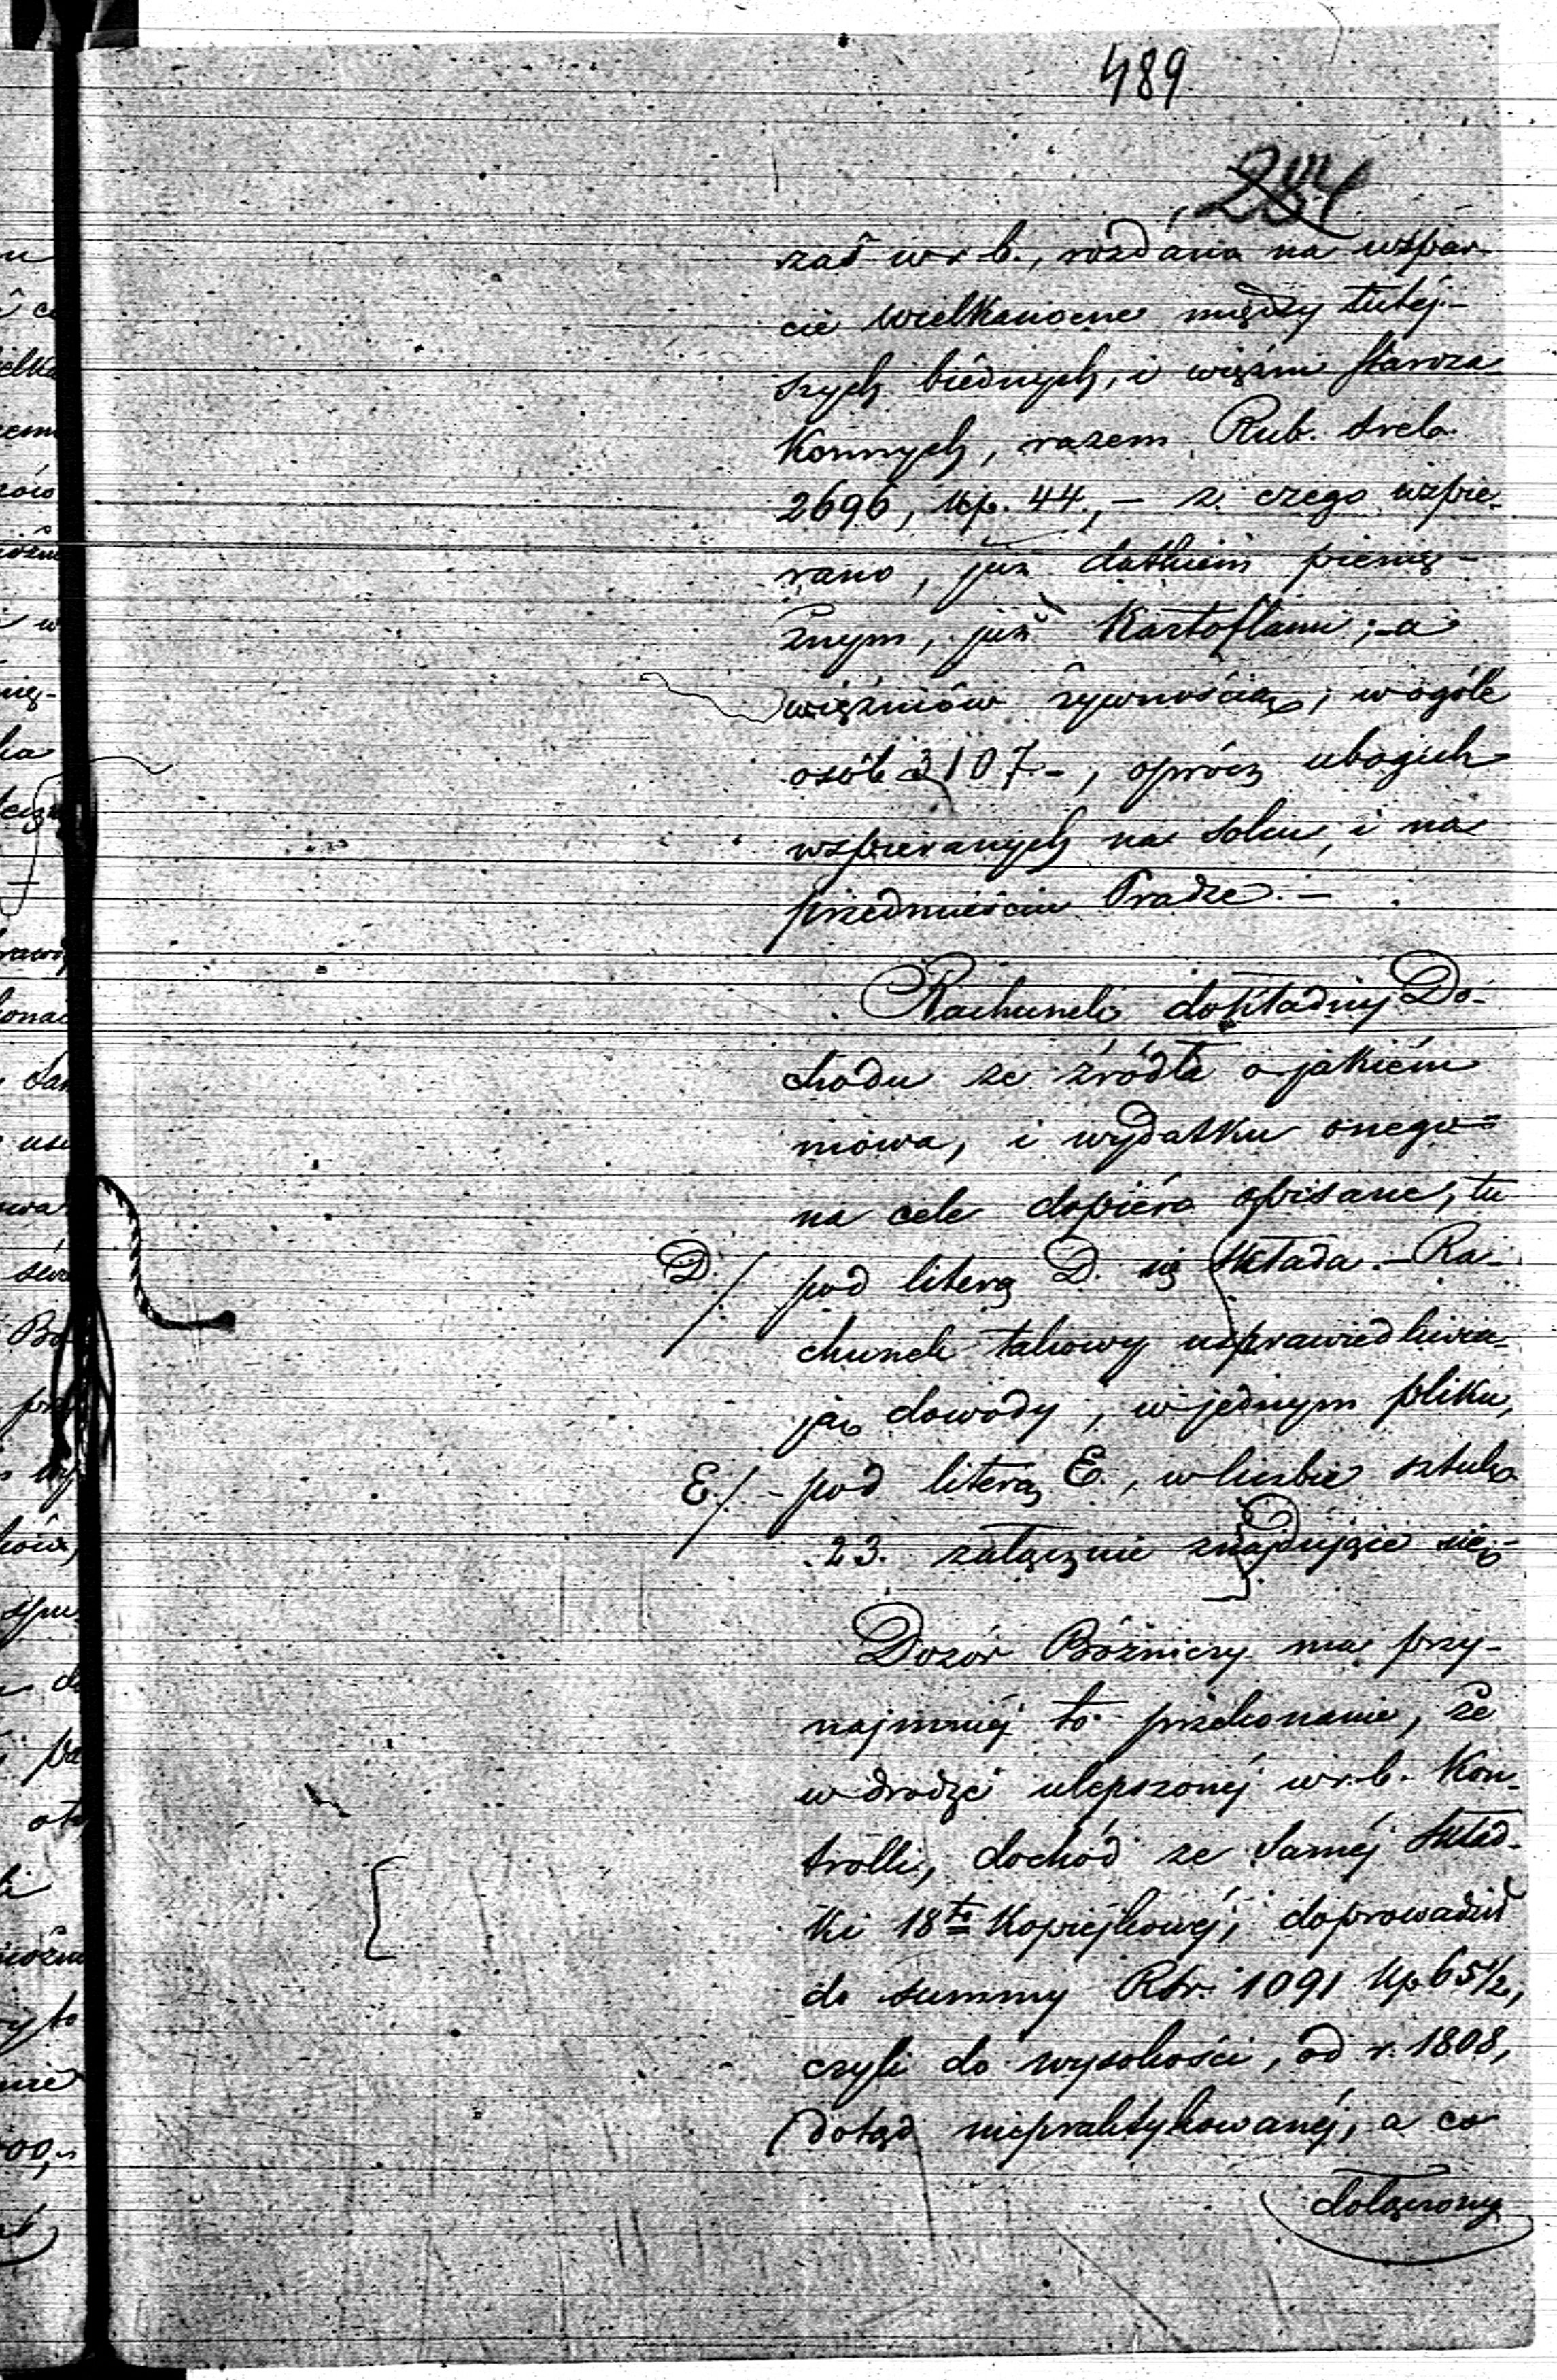 489
zaś w r. b., rozdano na wspar-
cie wielkanocne między tutej-
szych biednych, i więźni Staroza-
konnych, razem Rub. sreb.
2696, kp. 44., – z czego wspie-
rano, już datkiem pienię-
żnym, już kartoflami; – a
więźniów żywnością, w ogóle
osób 3107 –, oprócz ubogich
wspieranych na Solcu, i na
przedmieściu Pradze. –
Rachunek dokładny Do-
chodu ze źródła o jakiém
mowa, i wydatku onego
na cele dopiéro opisane, tu
D./. pod literą D. się składa. – Ra-
chunek takowy usprawiedliwia-
ją dowody, w jednym pliku,
E./. – pod literą E., w liczbie sztuk
23. załącznie znajdujące się. –
Dozór Bóżniczy ma przy-
najmniéj to przekonanie, że
w drodze ulepszonéj w r. b. Kon-
trolli, dochód ze saméj skład-
ki 18to Kopiejkowéj, doprowadził
do summy Rbr. 1091 kp 65 1/2,
czyli do wysokości, od r. 1808,
dotąd niepraktykowanéj, a co
dołączony